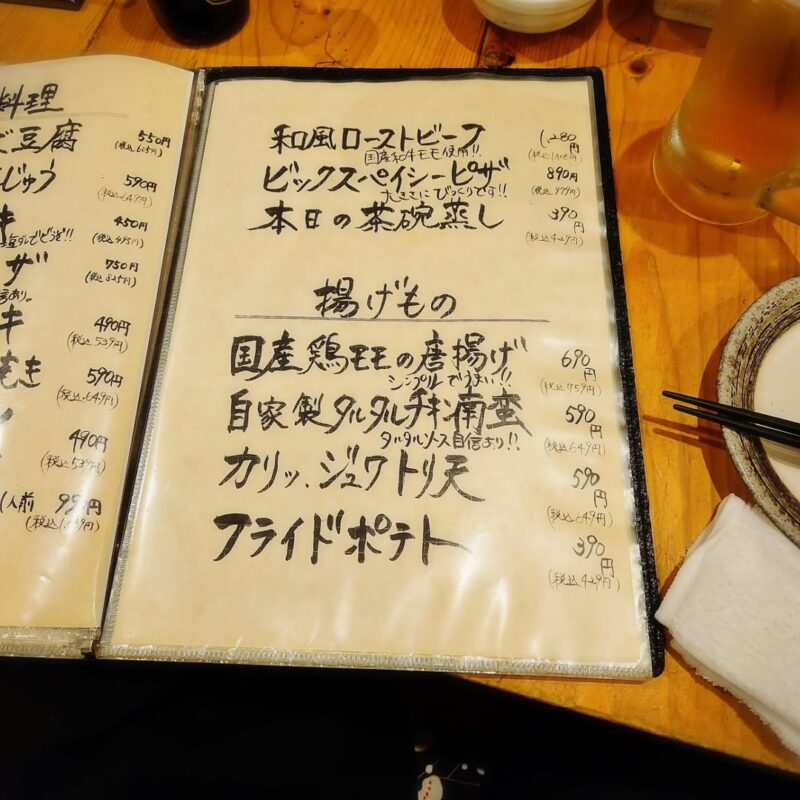 料理
豆腐 550円
(税込605円)
じゅう 590円
(税込649円)
キ 450円
(税込495円)
ザ 750円
(税込825円)
キ 490円
(税込539円)
590円
(税込649円)
490円
(税込539円)
1人前
和風ローストビーフ 1,280円
国産和牛モモ使用!!
ビックスペイシーピザ 890円
大きさにびっくりです!! (税込979円)
本日の茶碗蒸し 390円
(税込429円)
揚げもの
国産鶏モモの唐揚げ 690円
シンプルでうまい!! (税込759円)
自家製タルタルチキン南蛮 590円
タルタルソース自信より!! (税込649円)
カリッ、ジュワトリ天 590円
(税込649円)
フライドポテト 390円
(税込429円)